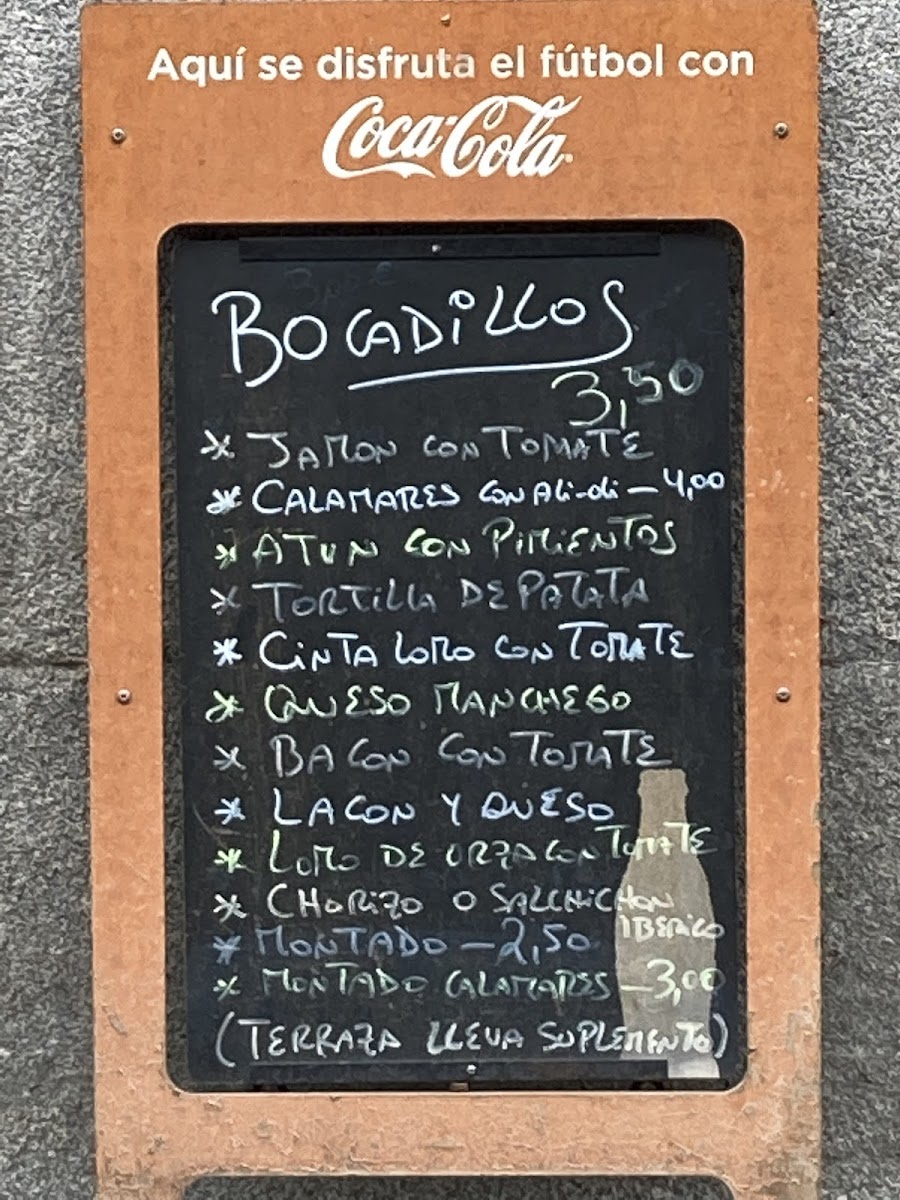 Aquí se disfruta el fútbol con
Coca-Cola
BOCADILLOS
3,50
* JAMON CON TOMATE
* CALAMARES CON ALI-OLI - 4,00
* ATUN CON PIMIENTOS
* TORTILLA DE PATATA
* CINTA LOMO CON TOMATE
* QUESO MANCHEGO
* BACON CON TOMATE
* LACON Y QUESO
* LOMO DE ORZA CON TOMATE
* CHORIZO O SALCHICHON
IBERICO
* MONTADO - 2,50
* MONTADO CALAMARES - 3,00
(TERRAZA LLEVA SUPLEMENTO)